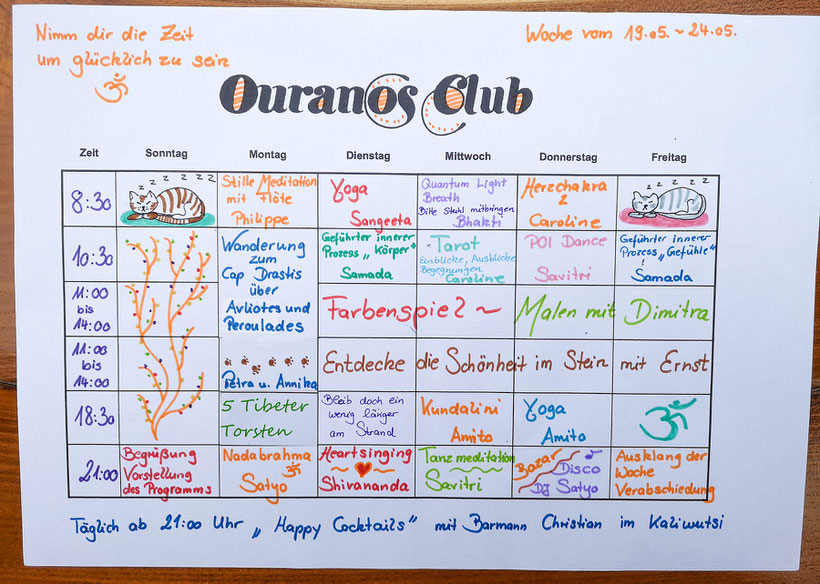 Nimm dir die Zeit
um glücklich zu sein
ॐ
Woche vom 19.05. ~ 24.05.
Ouranos Club
Zeit Sonntag Montag Dienstag Mittwoch Donnerstag Freitag
8:30
z z z z z z
Stille Meditation
mit Flöte
Philippe
Yoga
Sangeeta
Quantum Light
Breath
Bitte Stuhl mitbringen
Bhakti
Herzchakra
2
Caroline
z z z z z z
10:30
Wanderung
zum
Cap Drastis
über
Avliotes und
Peroulades
Petra u. Annika
Geführter innerer
Prozess „Körper"
Samada
Tarot
Einblicke, Ausblicke
Begegnungen
Caroline
POI Dance
Savitri
Geführter innerer
Prozess „Gefühle"
Samada
11:00
bis
14:00
Farbenspiel ~ Malen mit Dimitra
11:00
bis
14:00
Entdecke die Schönheit im Stein mit Ernst
18:30
5 Tibeter
Torsten
Bleib doch ein
wenig länger
am Strand
Kundalini
Amito
Yoga
Amito
ॐ
21:00
Begrüßung
Vorstellung
des Programms
Nadabrahma
ॐ
Satyo
Heartsinging
Shivananda
Tanzmeditation
Savitri
Bazar
Disco
DJ Satyo
Ausklang der
Woche
Verabschiedung
Täglich ab 21:00 Uhr „Happy Cocktails" mit Barmann Christian im Kaliwutsi